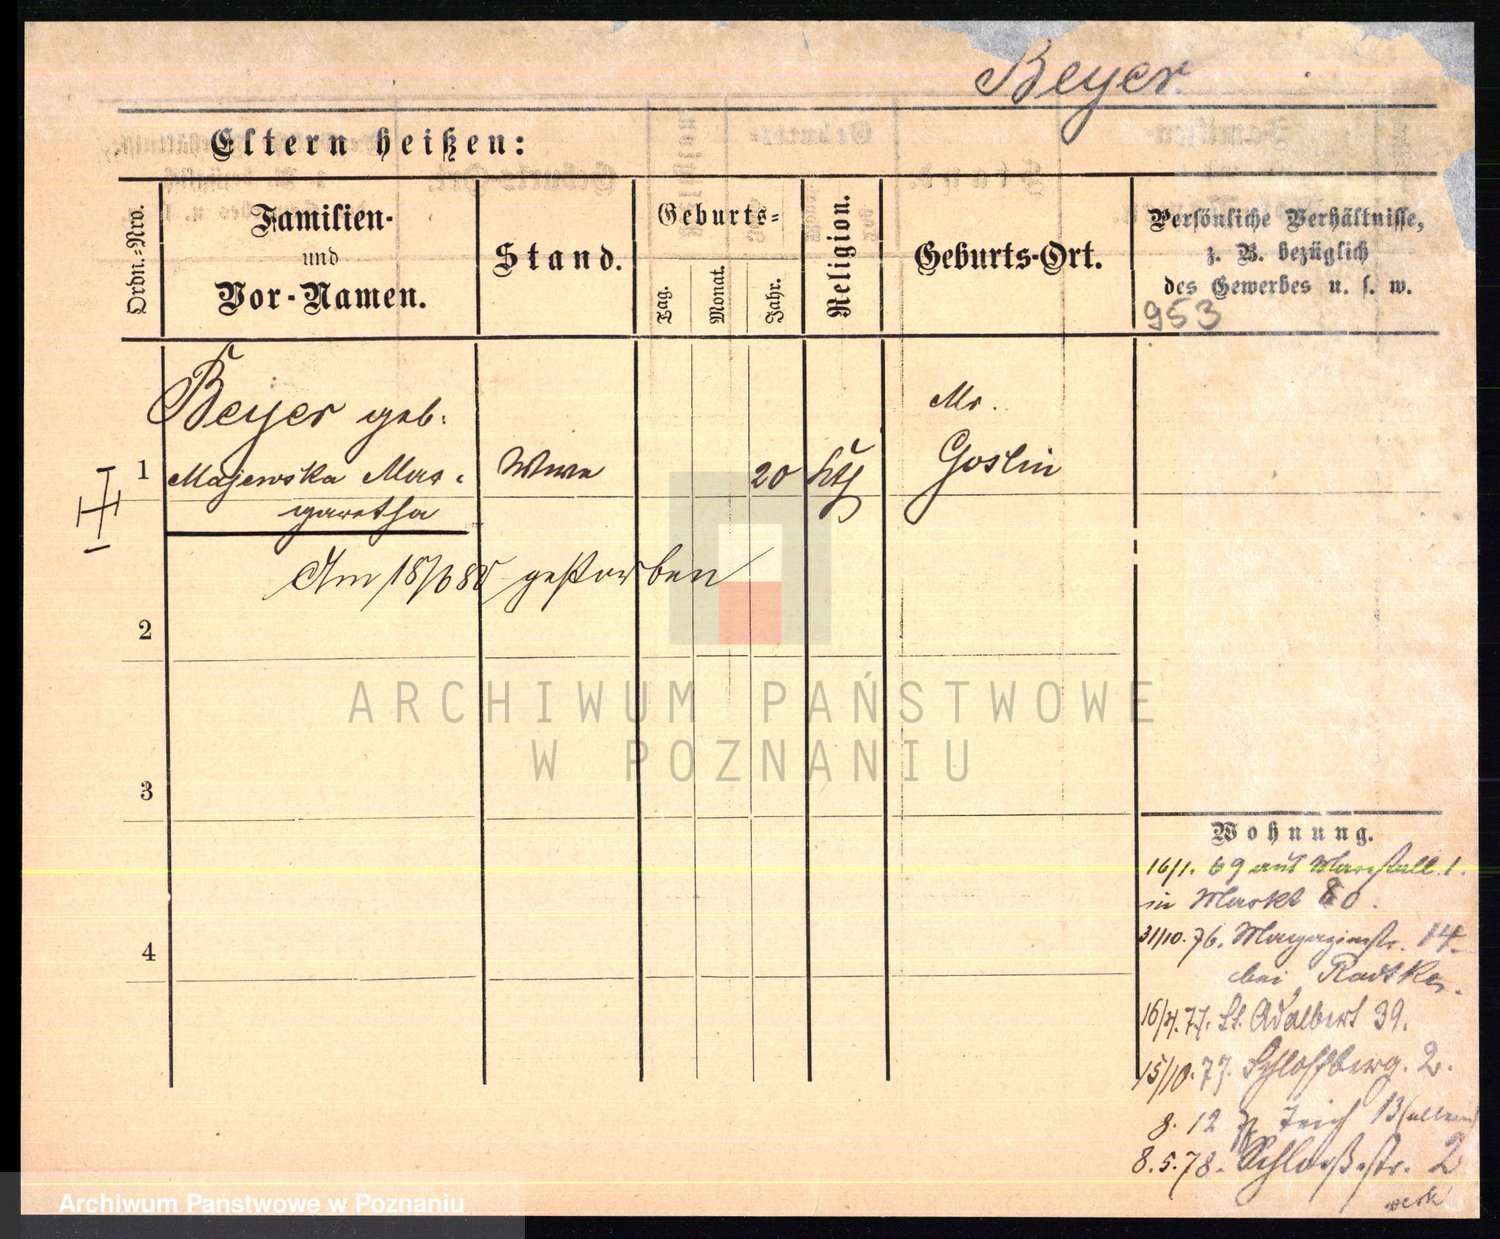 Beyer.
Eltern heißen:
Ordn.-Nro.
Familien-
und
Vor-Namen.
Stand.
Geburts-
Tag.
Monat.
Jahr.
Religion.
Geburts-Ort.
Persönliche Verhältnisse,
z. B. bezüglich
des Gewerbes u. s. w.
953
Beyer geb:
1
Majewska Mar-
garetha
Wwe
20
kth
Mr.
Goslin
Am 18/6 80 gestorben
2
3
4
ARCHIWUM PAŃSTWOWE
W POZNANIU
Wohnung.
16/1. 69 aus Marstall. 1.
in Markt 80.
31/10. 76. Magazinstr. 14.
bei Radtke.
77. St. Adalbert 39.
15/10. 77. Schloßberg. 2.
8. 12 Teich 13 (allein)
8. 5. 78. Schloßstr. 2
Archiwum Państwowe w Poznaniu